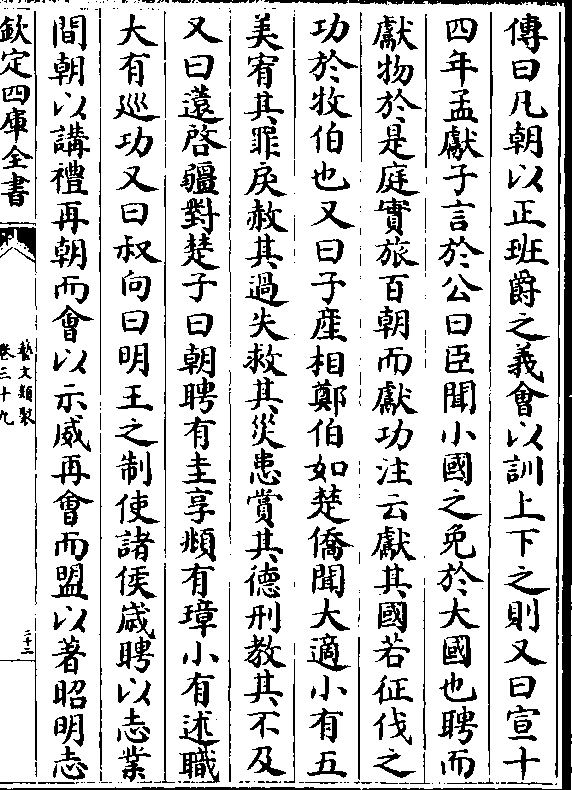 傳曰凡朝以正班爵之義會以訓上下之則又曰宣十
四年孟獻子言於公曰臣聞小國之免於大國也聘而
獻物於是庭實旅百朝而獻功注云獻其國若征伐之
功於牧伯也又曰子產相鄭伯如楚僑聞大適小有五
美宥其罪戾赦其過失救其災患賞其德刑教其不及
又曰薳啓疆對楚子曰朝聘有圭享頫有璋小有述職
大有巡功又曰叔向曰明王之制使諸侯歲聘以志業
間朝以講禮再朝而會以示威再會而盟以著昭明志
欽定四庫全書
藝文類聚
卷三十九
二十二